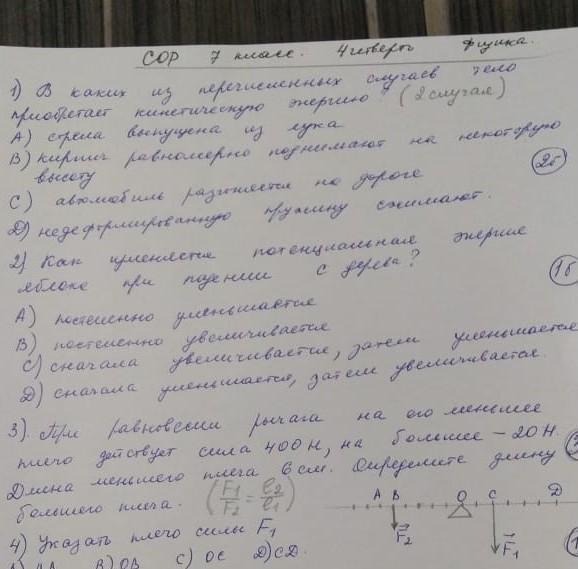 СОР 7 класс. 4 четверть Физика.
1) В каких из перечисленных случаев тело
приобретает кинетическую энергию (2 случая)
А) стрела выпущена из лука
В) кирпич равномерно поднимают на некоторую
высоту
2б
С) автомобиль разгоняется по дороге
Д) недеформированную пружину сжимают.
2) Как изменяется потенциальная энергия
яблока при падении с дерева?
1б
А) постепенно уменьшается
В) постепенно увеличивается
С) сначала увеличивается, затем уменьшается
D) сначала уменьшается, затем увеличивается.
3). При равновесии рычага на его меньшее
плечо действует сила 400 Н, на большее – 20 Н.
Длина меньшего плеча 6 см. Определите длину
большего плеча. (F1/F2 = l2/l1)
А В О С D
F2 F1
4) Указать плечо силы F1
В) ОВ С) ОС D) CD.